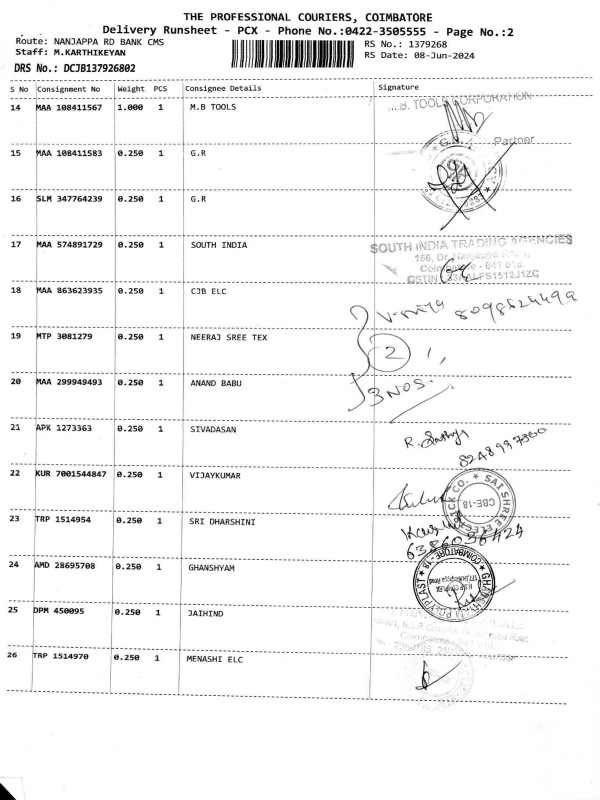 THE PROFESSIONAL COURIERS, COIMBATORE
Delivery Runsheet - PCX - Phone No.:0422-3505555 - Page No.:2
Route: NANJAPPA RD BANK CMS
RS No.: 1379268
Staff: M.KARTHIKEYAN
RS Date: 08-Jun-2024
DRS No.: DCJB137926802
S No Consignment No Weight PCS Consignee Details Signature
14 MAA 108411567 1.000 1 M.B TOOLS
M.B. TOOLS CORPORATION
Partner
15 MAA 108411583 0.250 1 G.R
16 SLM 347764239 0.250 1 G.R
17 MAA 574891729 0.250 1 SOUTH INDIA
SOUTH INDIA TRADING AGENCIES
18 MAA 863623935 0.250 1 CJB ELC
8098624499
19 MTP 3081279 0.250 1 NEERAJ SREE TEX
2
20 MAA 299949493 0.250 1 ANAND BABU
3 NOS.
21 APK 1273363 0.250 1 SIVADASAN
22 KUR 7001544847 0.250 1 VIJAYKUMAR
SAI SHREE
CBE-18
23 TRP 1514954 0.250 1 SRI DHARSHINI
6386036424
24 AMD 28695708 0.250 1 GHANSHYAM
COIMBATORE - 18
25 DPM 450095 0.250 1 JAIHIND
26 TRP 1514970 0.250 1 MENASHI ELC